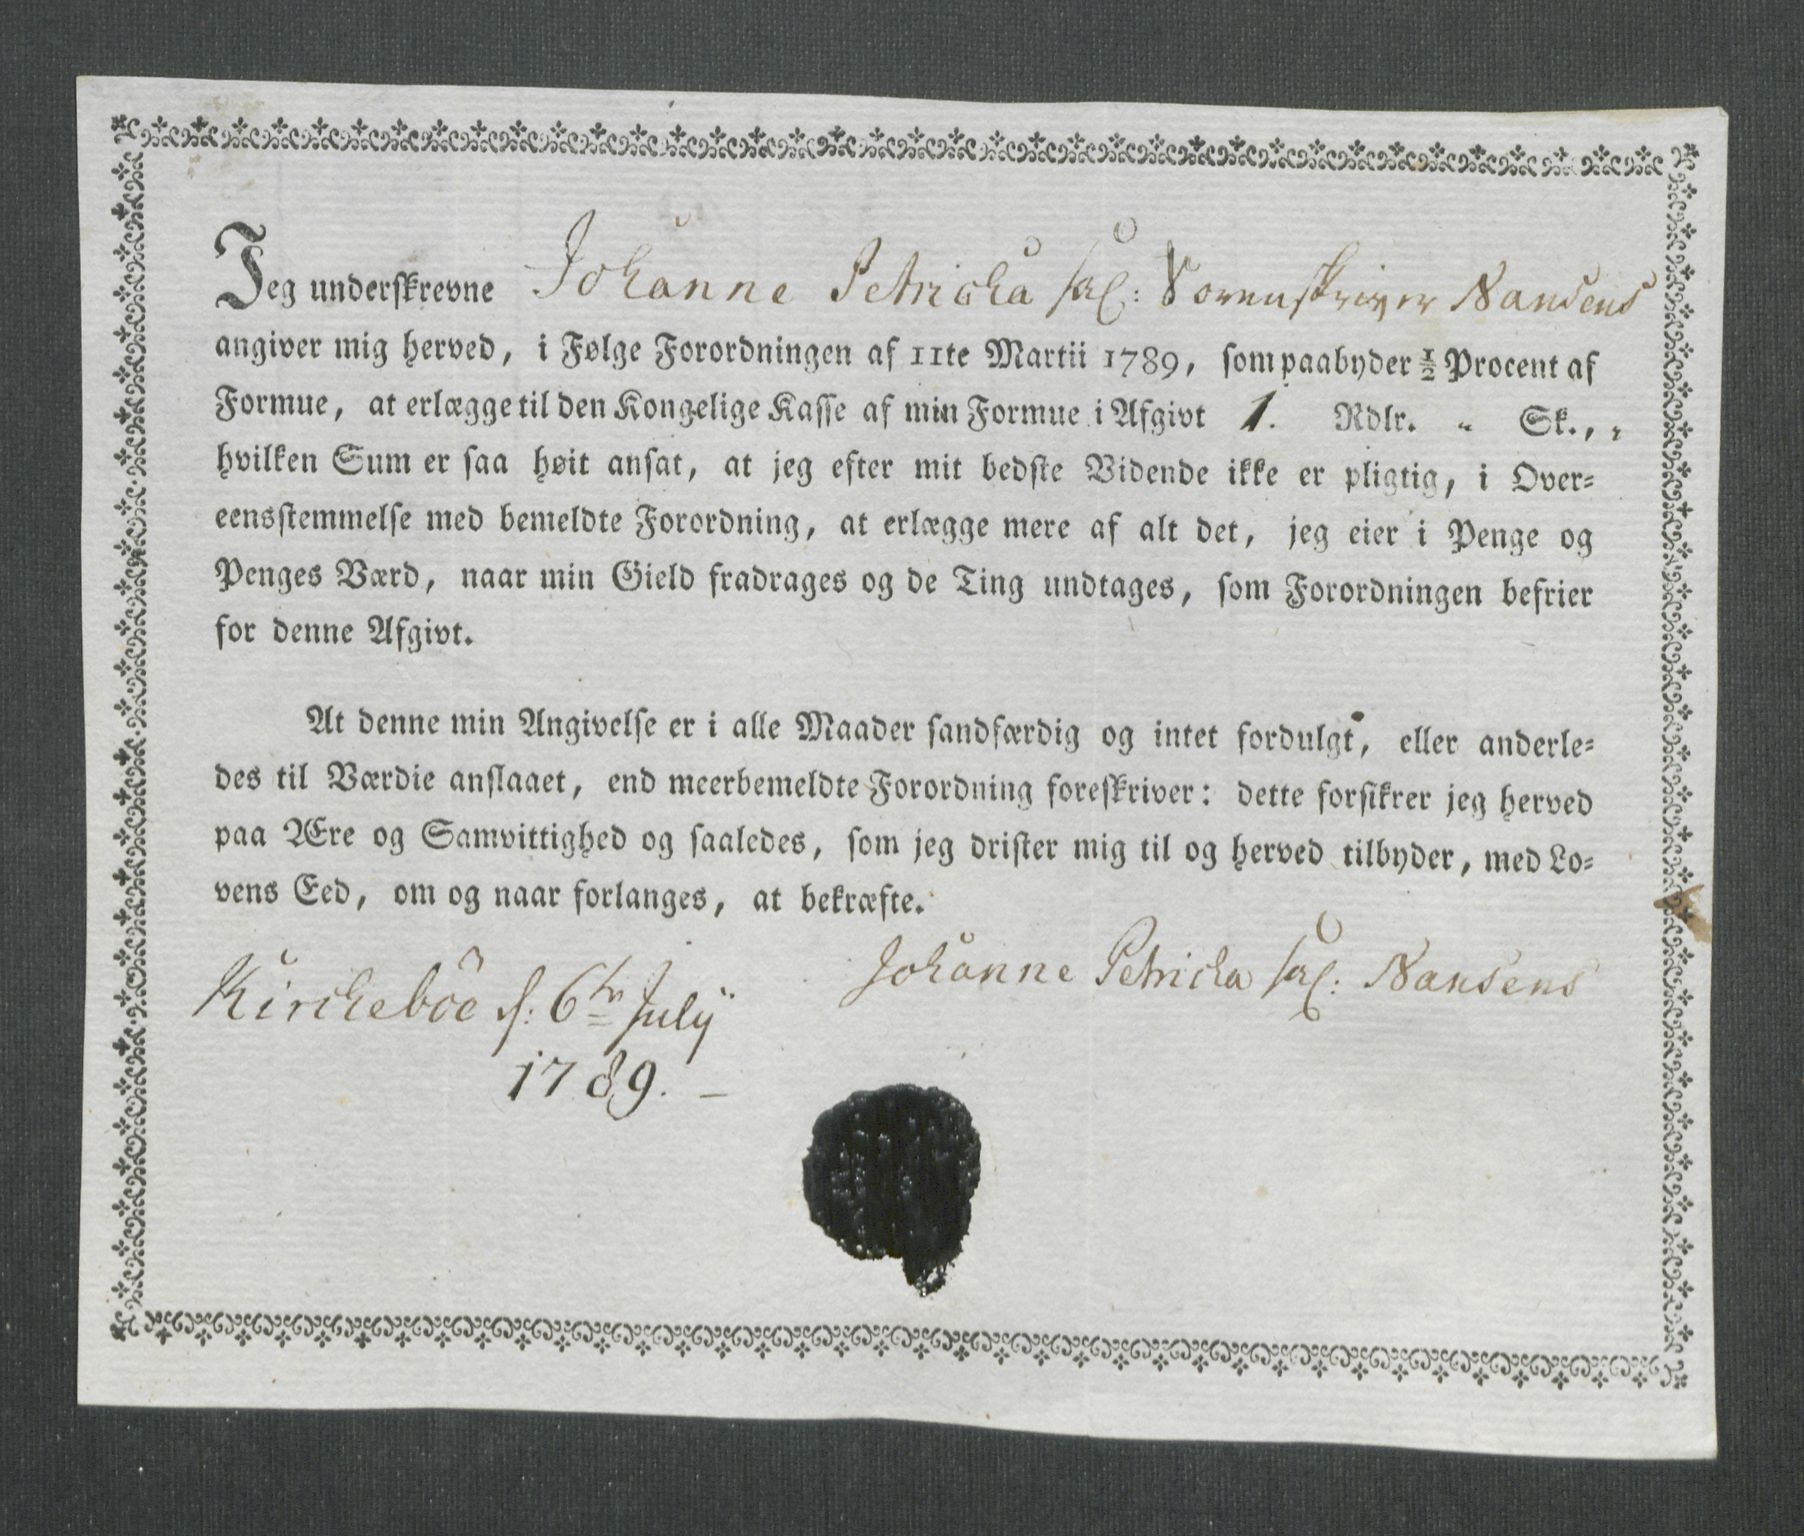 Jeg underskrevne Johanne Petricha sal: Sorenskriver Nansens
angiver mig herved, i Følge Forordningen af 11te Martii 1789, som paabyder ½ Procent af
Formue, at erlægge til den Kongelige Kasse af min Formue i Afgivt 1. Rdlr. " Sk.,,
hvilken Sum er saa høit ansat, at jeg efter mit bedste Vidende ikke er pligtig, i Over=
eensstemmelse med bemeldte Forordning, at erlægge mere af alt det, jeg eier i Penge og
Penges Værd, naar min Gield fradrages og de Ting undtages, som Forordningen befrier
for denne Afgivt.
At denne min Angivelse er i alle Maader sandfærdig og intet fordulgt, eller anderle=
des til Værdie anslaaet, end meerbemeldte Forordning foreskriver: dette forsikrer jeg herved
paa Ære og Samvittighed og saaledes, som jeg drister mig til og herved tilbyder, med Lo=
vens Eed, om og naar forlanges, at bekræfte.
Johanne Petricha sal: Nansens
Kircheböe d: 6te Julij
1789. —